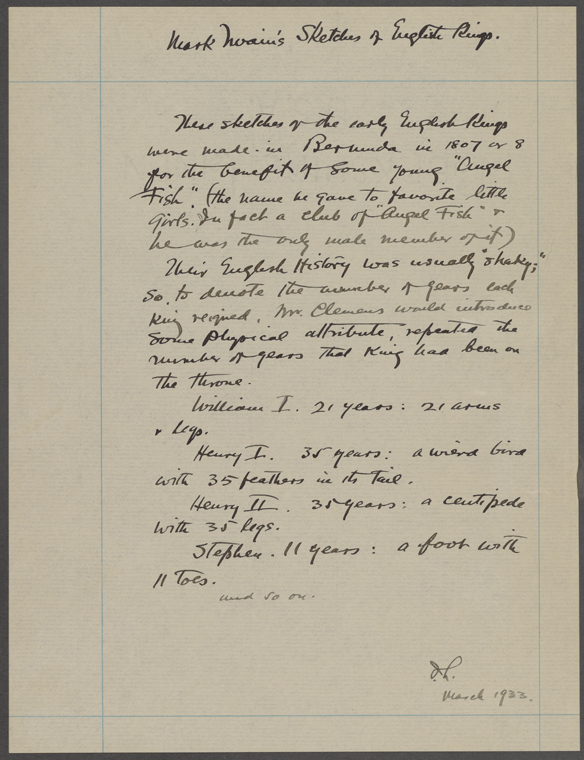 Mark Twain's Sketches of English Kings.
These sketches of the early English Kings
were made in Bermuda in 1807 or 8
for the benefit of some young "Angel
Fish". (the name he gave to favorite little
girls. In fact a club of "Angel Fish" &
he was the only male member of it)
Their English History was usually "shaky;"
so, to denote the number of years each
King reigned, Mr. Clemens would introduce
some physical attribute, repeated the
number of years that King had been on
the throne.
William I. 21 years: 21 arms
& legs.
Henry I. 35 years: a wierd bird
with 35 feathers in its tail.
Henry II. 35 years: a centipede
with 35 legs.
Stephen. 11 years: a foot with
11 toes.
and so on.
March 1933.